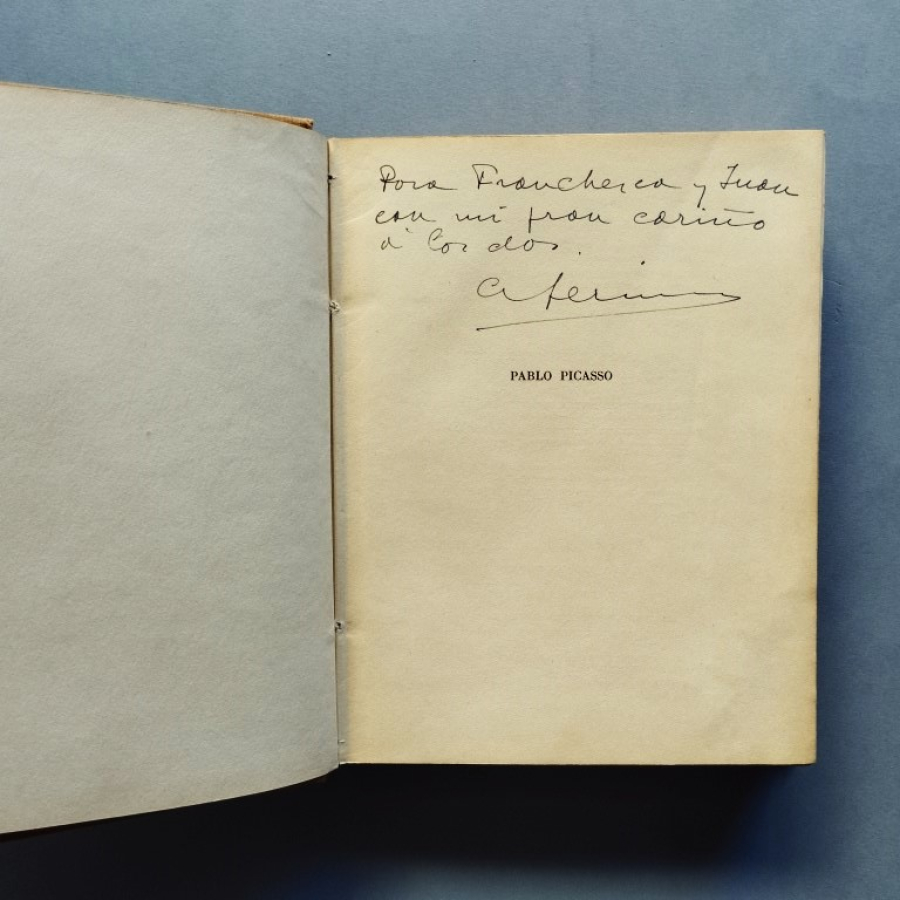 Para Franchesca y Juan
con mi gran cariño
a los dos.
PABLO PICASSO